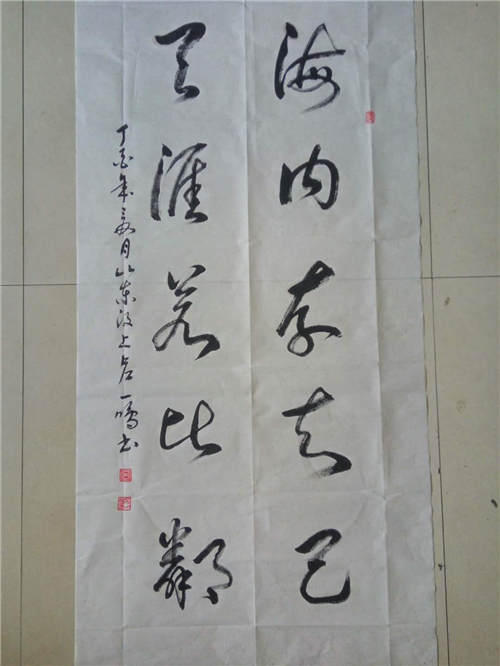 海内存知己
天涯若比鄰
丁酉年月山東汶上一鳴书